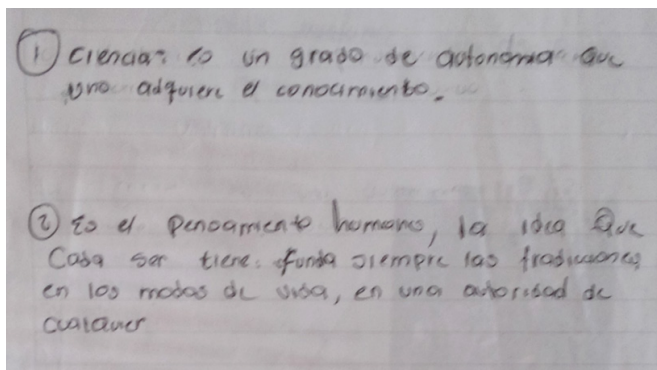 ① Ciencia: es un grado de autonomia que
uno adquiere el conocimiento.
② Es el pensamiento humano, la idea Que
Cada ser tiene. funda siempre las tradiciones
en los modos de vida, en una autoridad de
cualquier